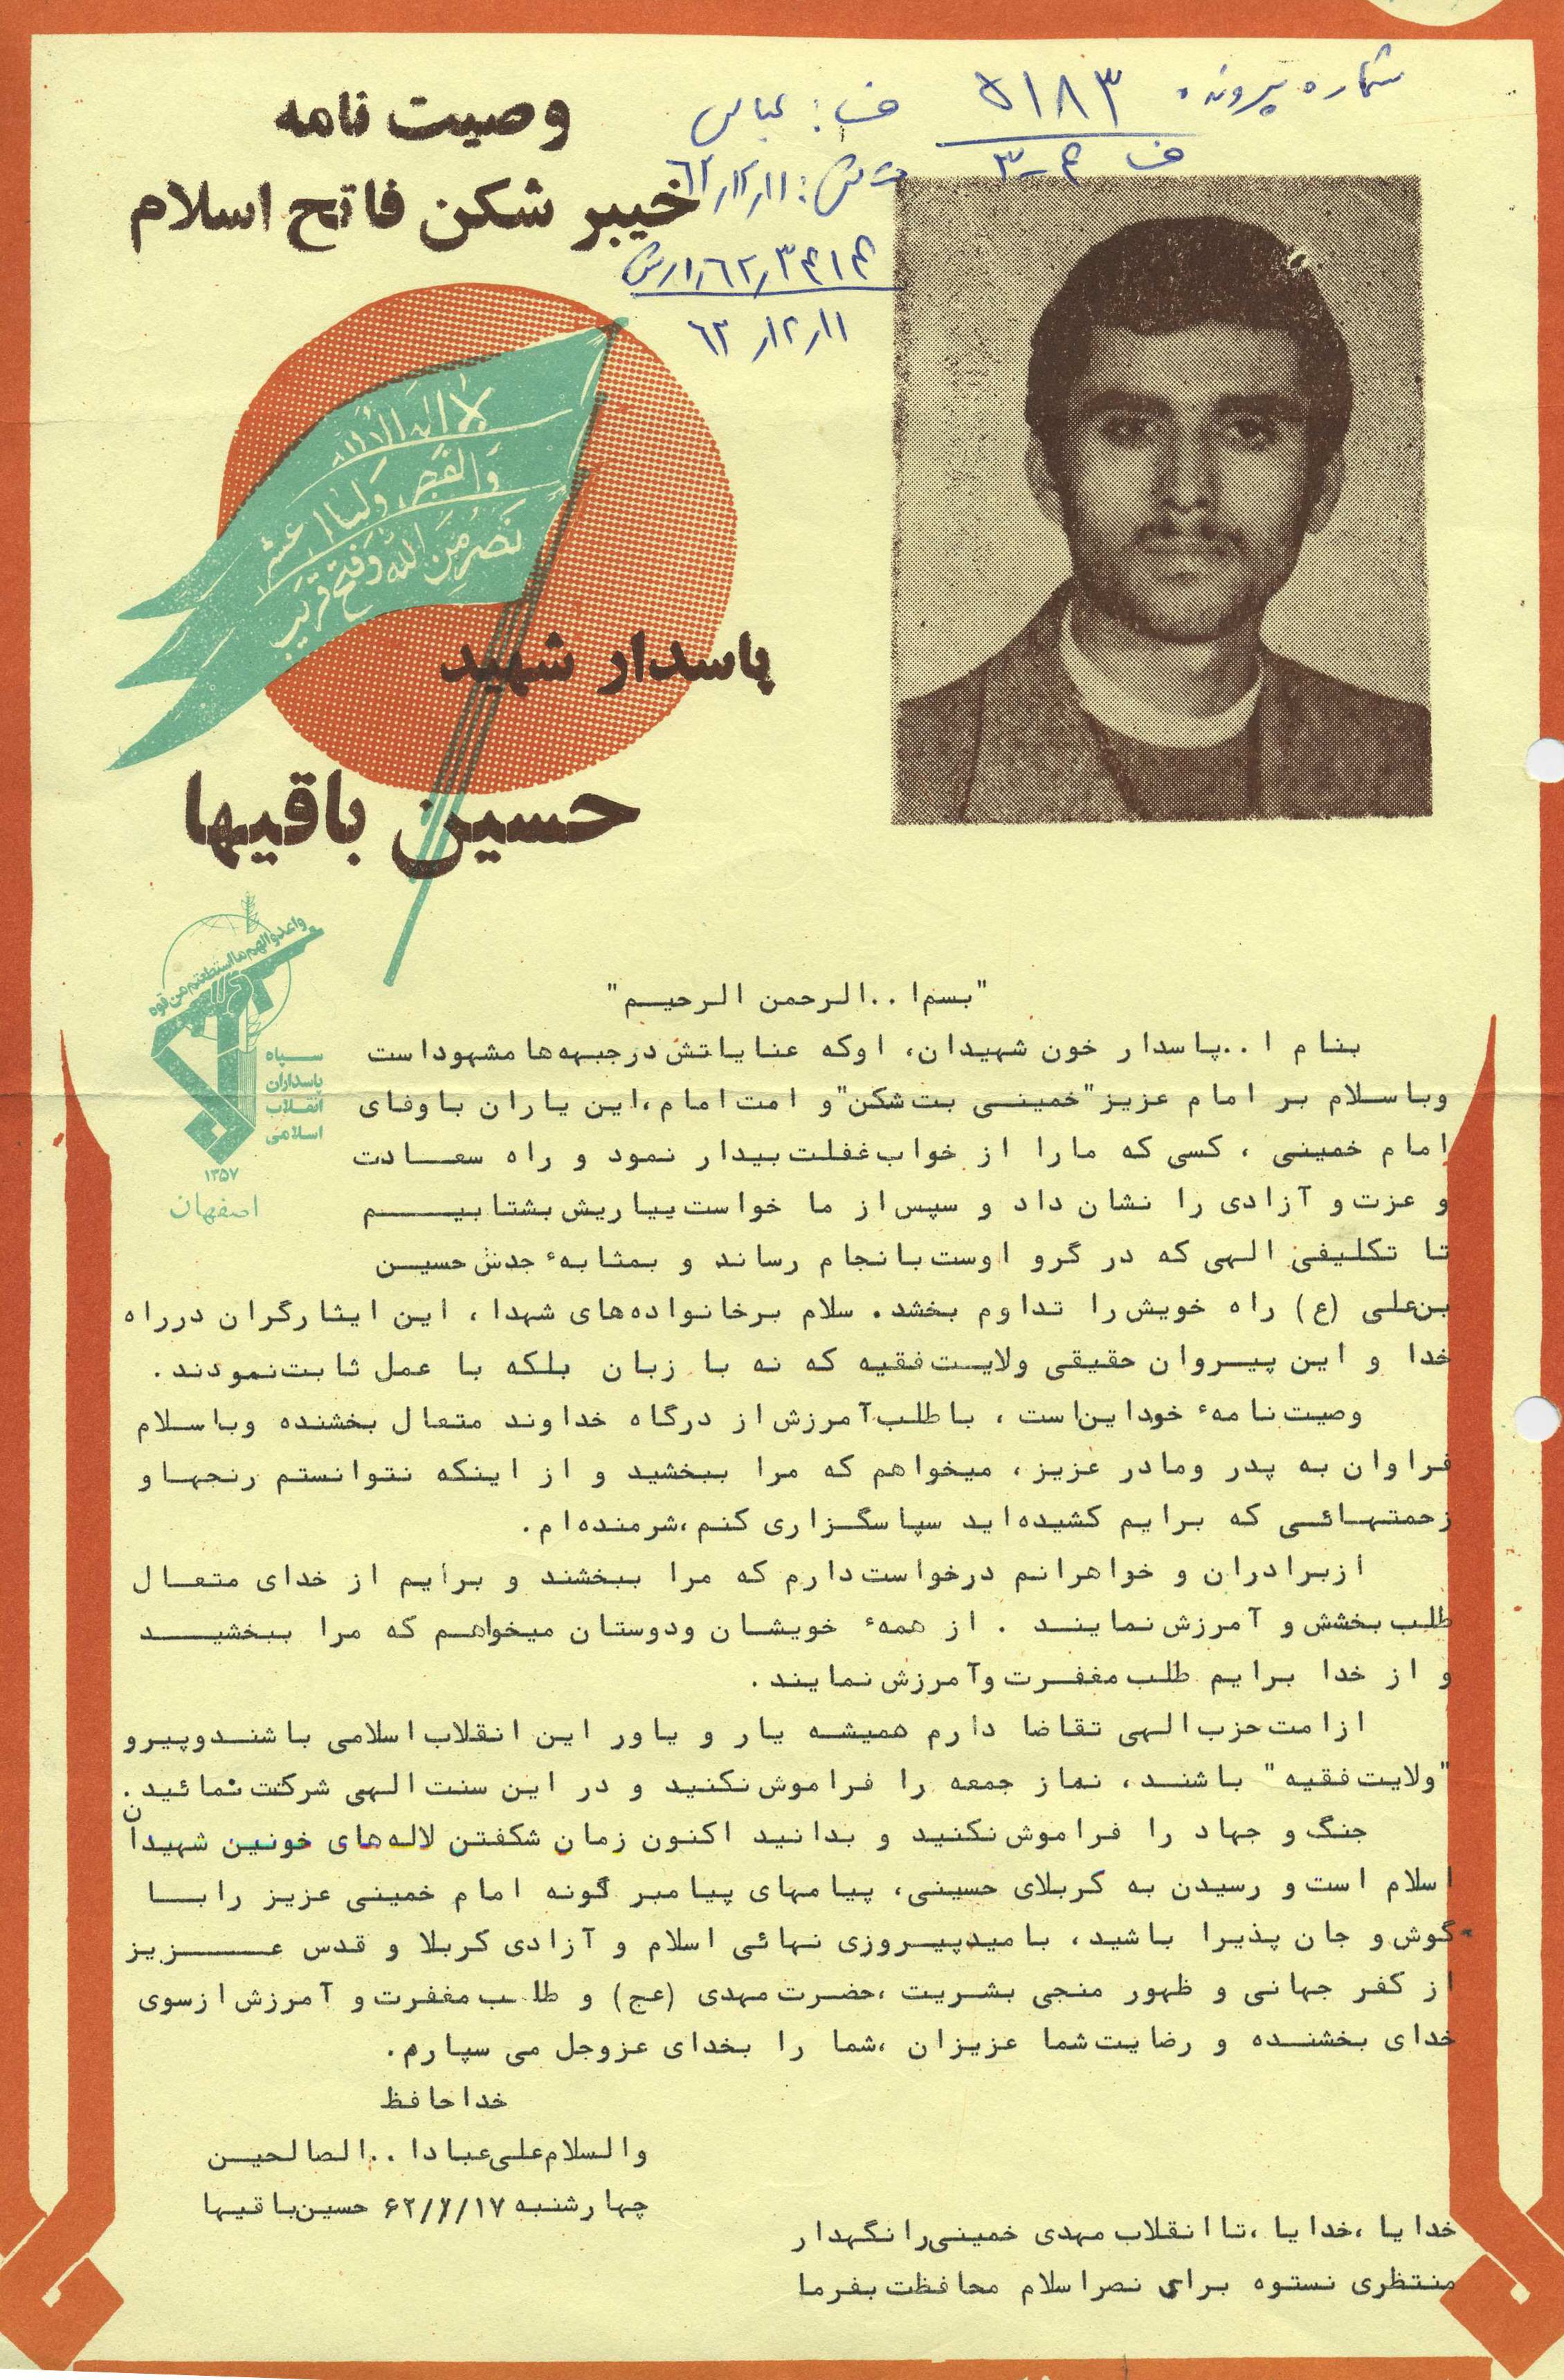 شماره پرونده ۵۱۸۳
ف ۴-۳
ف: عباس
ت ش: ۶۲/۱۲/۱۱
۶۲/۱۲/۱۱
وصیت نامه
خیبر شکن فاتح اسلام
لا اله الا الله
والفجر ولیال عشر
نصر من الله وفتح قریب
پاسدار شهید
حسین باقیها
واعدوا لهم ما استطعتم من قوه
سپاه
پاسداران
انقلاب
اسلامی
۱۳۵۷
اصفهان
"بسم ا..الرحمن الرحیم"
بنام ا..پاسدار خون شهیدان، اوکه عنایاتش درجبهه‌ها مشهوداست
وباسلام بر امام عزیز"خمینی بت‌شکن"و امت امام،این یاران باوفای
امام خمینی ، کسی که مارا از خواب غفلت بیدار نمود و راه سعادت
و عزت و آزادی را نشان داد و سپس از ما خواست بیاریش بشتابیم
تا تکلیفی الهی که در گرو اوست بانجام رساند و بمثابهٔ جدش حسین
بن‌علی (ع) راه خویش را تداوم بخشد. سلام برخانواده‌های شهدا ، این ایثارگران درراه
خدا و این پیروان حقیقی ولایت فقیه که نه با زبان بلکه با عمل ثابت نمودند.
وصیت نامهٔ خوداین‌است ، باطلب آمرزش از درگاه خداوند متعال بخشنده وباسلام
فراوان به پدر ومادر عزیز ، میخواهم که مرا ببخشید و از اینکه نتوانستم رنجهاو
زحمتهائی که برایم کشیده‌اید سپاسگزاری کنم،شرمنده‌ام.
ازبرادران و خواهرانم درخواست دارم که مرا ببخشند و برایم از خدای متعال
طلب بخشش و آمرزش نمایند . از همهٔ خویشان ودوستان میخواهم که مرا ببخشید
و از خدا برایم طلب مغفرت وآمرزش نمایند .
ازامت حزب الهی تقاضا دارم همیشه یار و یاور این انقلاب اسلامی باشندوپیرو
"ولایت فقیه" باشند، نماز جمعه را فراموش نکنید و در این سنت الهی شرکت نمائید.
جنگ و جهاد را فراموش نکنید و بدانید اکنون زمان شکفتن لاله‌های خونین شهیدان
اسلام است و رسیدن به کربلای حسینی، پیامهای پیامبر گونه امام خمینی عزیز رابا
گوش و جان پذیرا باشید ، بامیدپیروزی نهائی اسلام و آزادی کربلا و قدس عزیز
از کفر جهانی و ظهور منجی بشریت ،حضرت مهدی (عج) و طلب مغفرت و آمرزش ازسوی
خدای بخشنده و رضایت شما عزیزان ،شما را بخدای عزوجل می سپارم.
خداحافظ
والسلام علی عبادا ..الصالحین
چهارشنبه ۶۲/۷/۱۷ حسین‌باقیها
خدایا ،خدایا ،تاانقلاب مهدی خمینی‌رانگهدار
منتظری نستوه برای نصراسلام محافظت بفرما